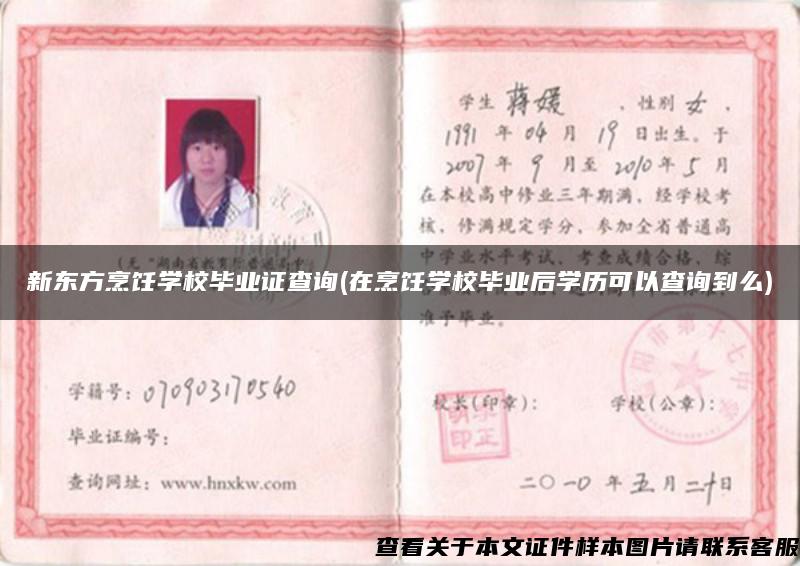 学生 蒋媛 ，性别 女，
1991 年 04 月 19 日出生。于
2007 年 9 月至 2010 年 5 月
在本校高中修业三年期满，经学校考
核，修满规定学分，参加全省普通高
中学业水平考试、考查成绩合格、综
新东方烹饪学校毕业证查询(在烹饪学校毕业后学历可以查询到么)
准予毕业。
学籍号：070903170540
毕业证编号：
查询网址：www.hnxkw.com
校长(印章)：
学校(公章)：
二〇一〇 年 五 月 二十 日
查看关于本文证件样本图片请联系客服